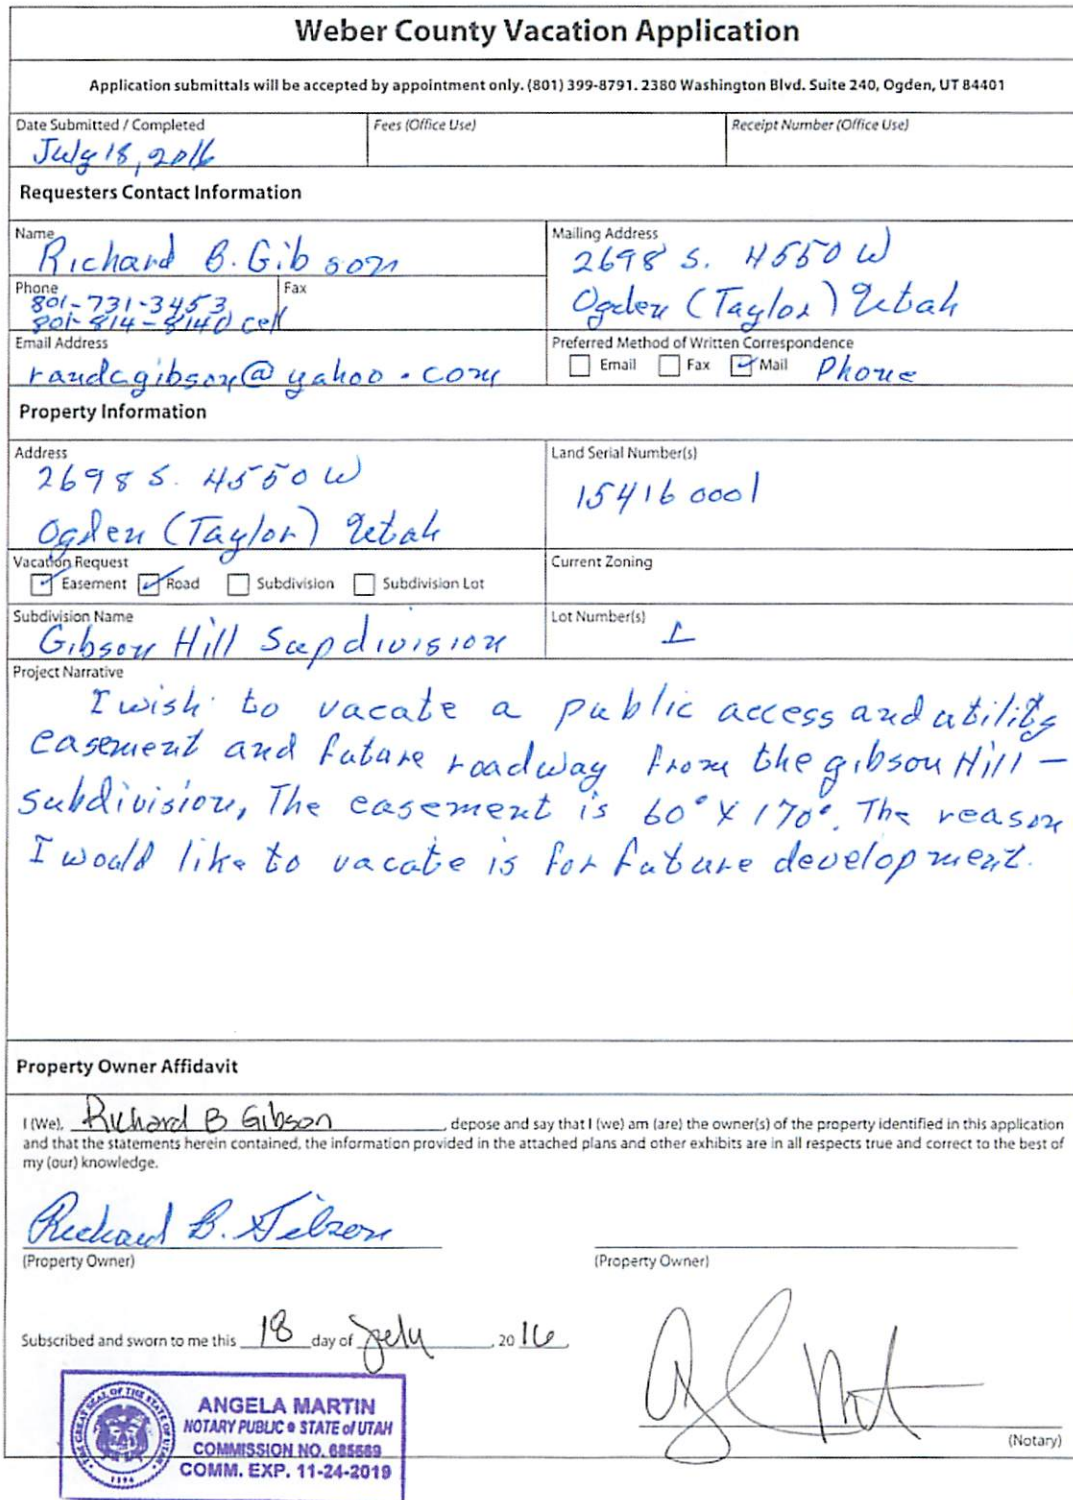 Weber County Vacation Application
Application submittals will be accepted by appointment only. (801) 399-8791. 2380 Washington Blvd. Suite 240, Ogden, UT 84401
Date Submitted / Completed
July 18, 2016
Fees (Office Use)
Receipt Number (Office Use)
Requesters Contact Information
Name
Richard B. Gibson
Mailing Address
2698 S. 4550 W
Ogden (Taylor) Utah
Phone
801-731-3453
801-814-8140 cell
Fax
Email Address
randcgibson@yahoo.com
Preferred Method of Written Correspondence
Email Fax Mail Phone
Property Information
Address
2698 S. 4550 W
Ogden (Taylor) Utah
Land Serial Number(s)
154160001
Vacation Request
Easement Road Subdivision Subdivision Lot
Current Zoning
Subdivision Name
Gibson Hill Supdivision
Lot Number(s)
1
Project Narrative
I wish to vacate a public access and utility
easement and future roadway from the gibson Hill -
subdivision, The easement is 60° X 170°. The reason
I would like to vacate is for future development.
Property Owner Affidavit
I (We), Richard B Gibson, depose and say that I (we) am (are) the owner(s) of the property identified in this application
and that the statements herein contained, the information provided in the attached plans and other exhibits are in all respects true and correct to the best of
my (our) knowledge.
Richard B. Gibson
(Property Owner)
(Property Owner)
Subscribed and sworn to me this 18 day of July, 2016
(Notary)
THE GREAT SEAL OF THE STATE OF UTAH
1896
ANGELA MARTIN
NOTARY PUBLIC • STATE of UTAH
COMMISSION NO. 685589
COMM. EXP. 11-24-2019